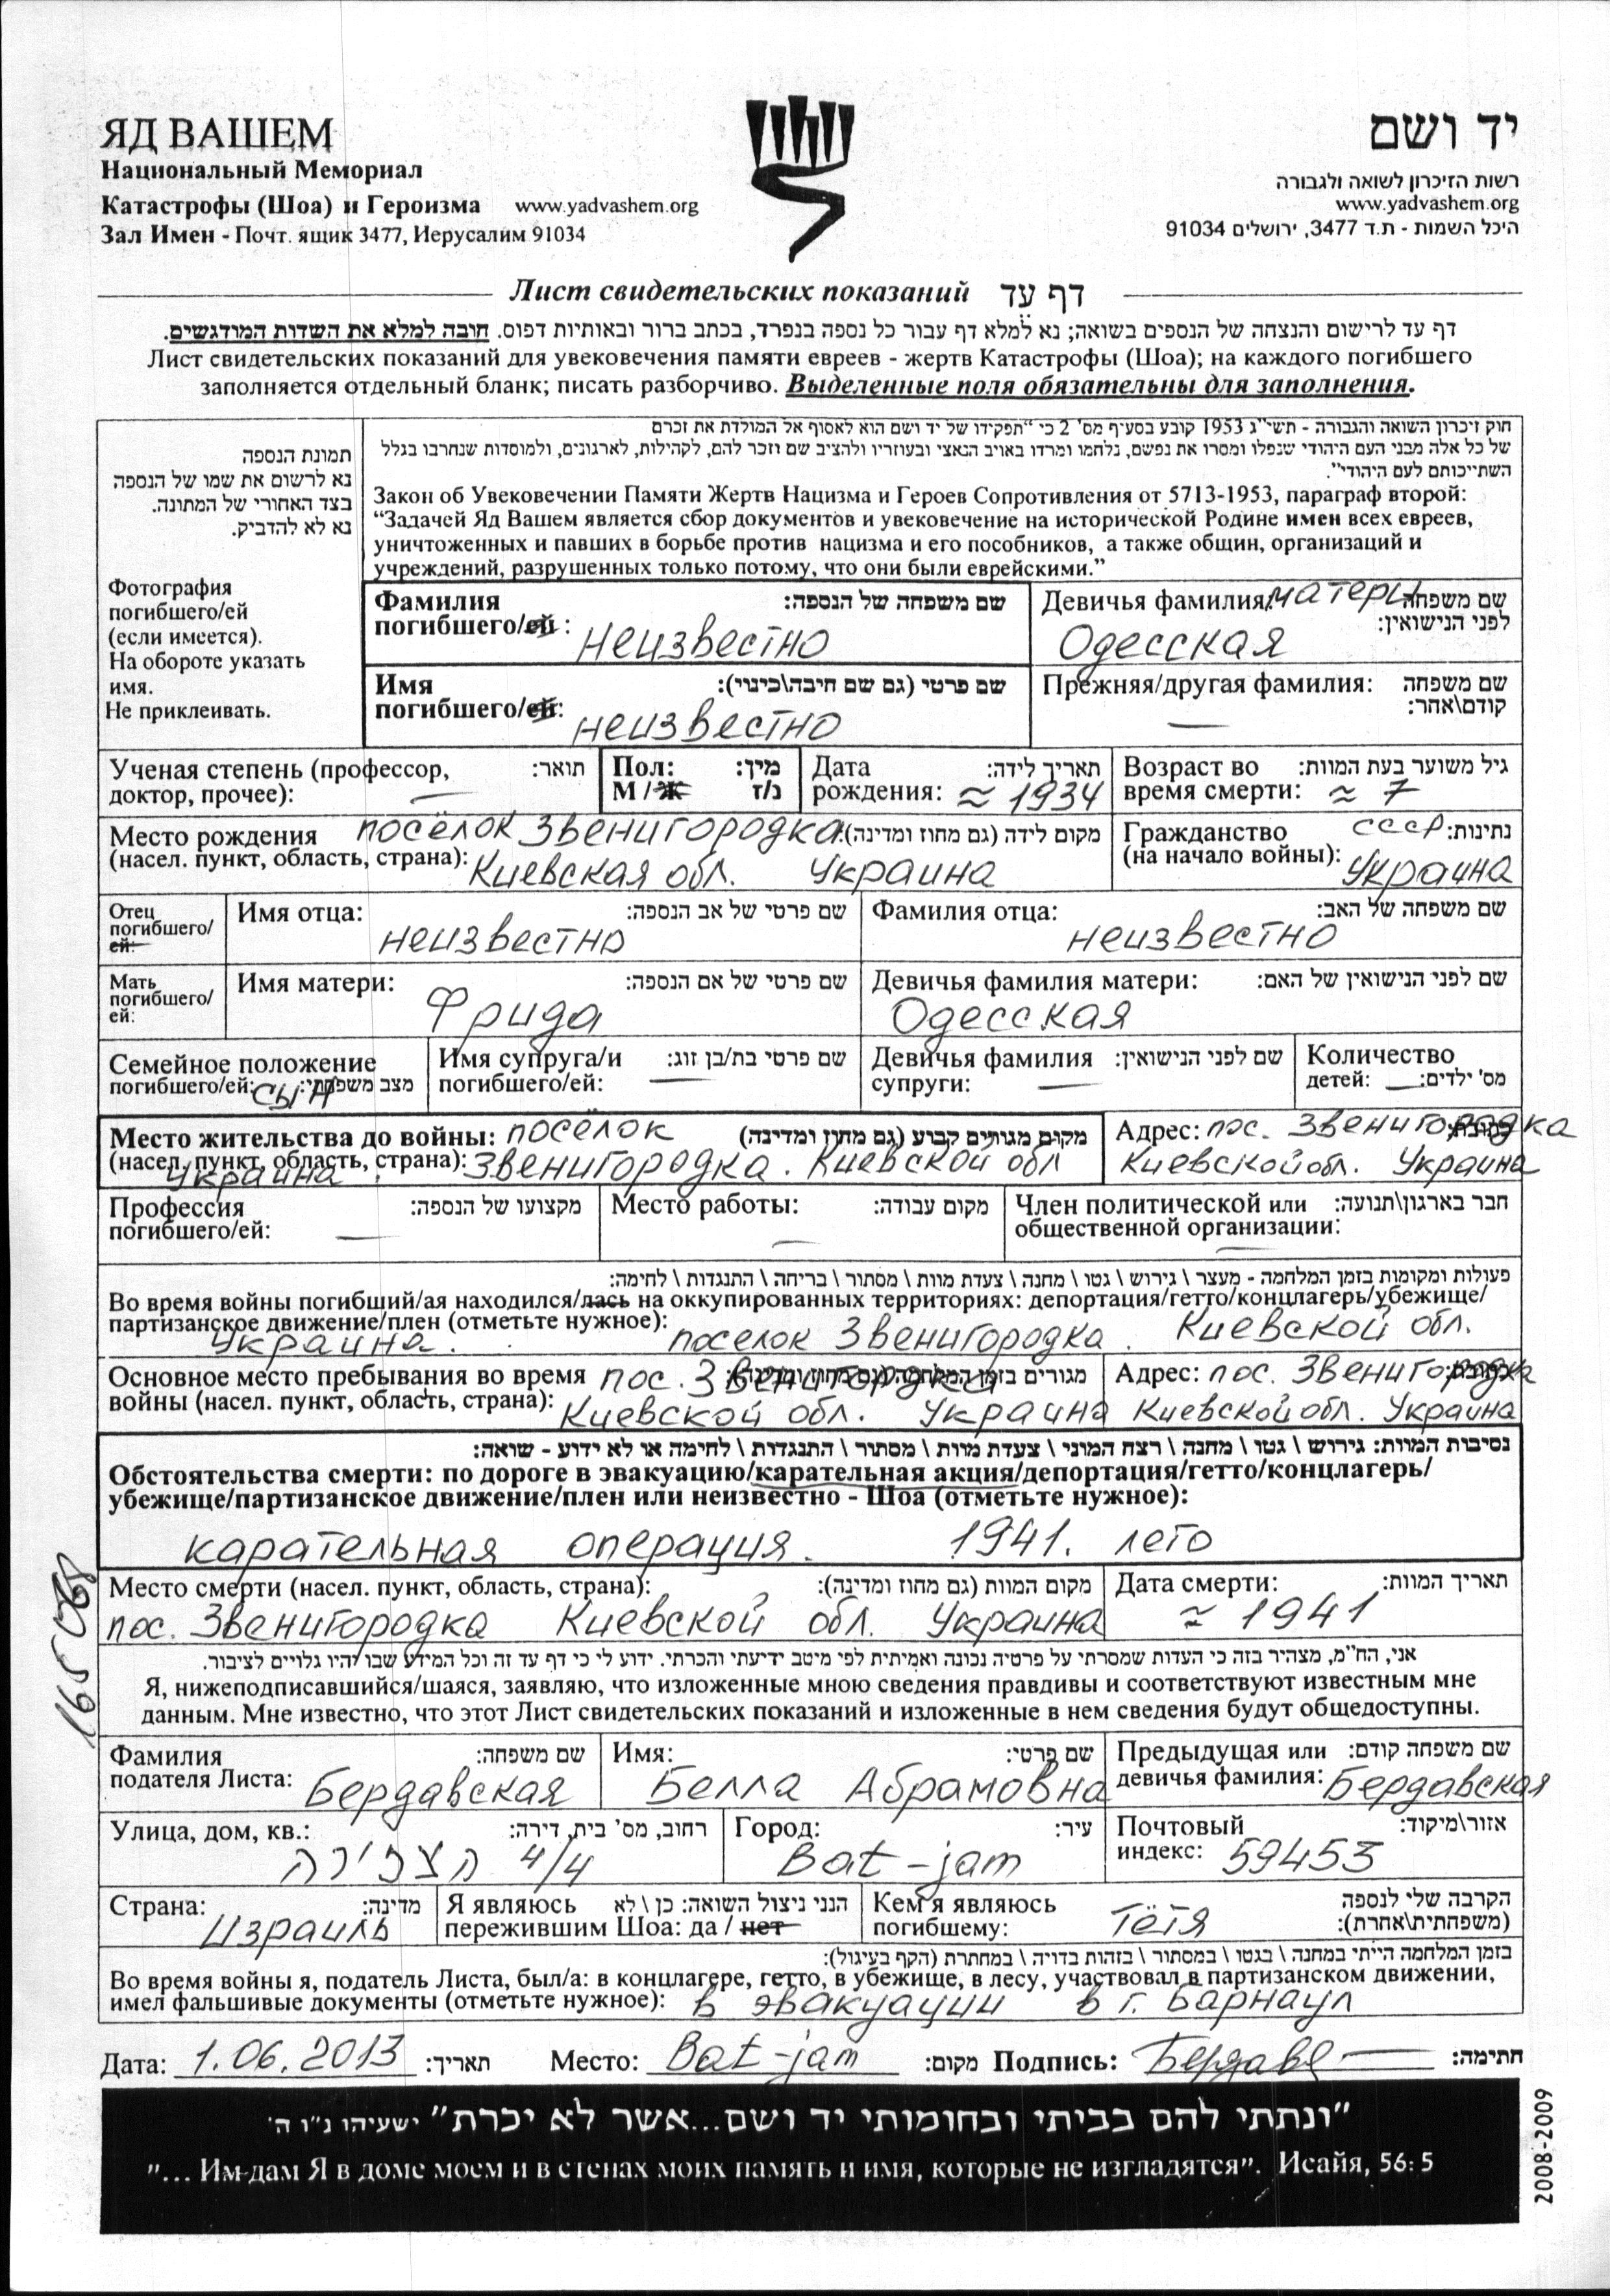 ЯД ВАШЕМ
Национальный Мемориал
Катастрофы (Шоа) и Героизма www.yadvashem.org
Зал Имен - Почт. ящик 3477, Иерусалим 91034
יד ושם
רשות הזיכרון לשואה ולגבורה
www.yadvashem.org
היכל השמות - ת.ד 3477, ירושלים 91034
Лист свидетельских показаний דף עד
דף עד לרישום והנצחה של הנספים בשואה; נא למלא דף עבור כל נספה בנפרד, בכתב ברור ובאותיות דפוס. חובה למלא את השדות המודגשים.
Лист свидетельских показаний для увековечения памяти евреев - жертв Катастрофы (Шоа); на каждого погибшего
заполняется отдельный бланк; писать разборчиво. Выделенные поля обязательны для заполнения.
תמונת הנספה
נא לרשום את שמו של הנספה
בצד האחורי של המתונה.
נא לא להדביק.
Фотография
погибшего/ей
(если имеется).
На обороте указать
имя.
Не приклеивать.
חוק זיכרון השואה והגבורה - תשי"ג 1953 קובע בסעיף מס' 2 כי "תפקידו של יד ושם הוא לאסוף אל המולדת את זכרם
של כל אלה מבני העם היהודי שנפלו ומסרו את נפשם, נלחמו ומרדו באויב הנאצי ובעוזריו ולהציב שם וזכר להם, לקהילות, לארגונים, ולמוסדות שנחרבו בגלל
השתייכותם לעם היהודי".
Закон об Увековечении Памяти Жертв Нацизма и Героев Сопротивления от 5713-1953, параграф второй:
“Задачей Яд Вашем является сбор документов и увековечение на исторической Родине имен всех евреев,
уничтоженных и павших в борьбе против нацизма и его пособников, а также общин, организаций и
учреждений, разрушенных только потому, что они были еврейскими.”
Фамилия שם משפחה של הנספה:
погибшего/ей: неизвестно
Девичья фамилия: матери שם משפחה
לפני הנישואין:
Одесская
Имя שם פרטי (גם שם חיבה\כינוי):
погибшего/ей: неизвестно
Прежняя/другая фамилия: שם משפחה
קודם\אחר:
—
Ученая степень (профессор, תואר:
доктор, прочее): —
Пол: מין:
М / Ж ז/נ
Дата תאריך לידה:
рождения: ≈ 1934
Возраст во גיל משוער בעת המוות:
время смерти: ≈ 7
Место рождения посёлок Звенигородка מקום לידה (גם מחוז ומדינה):
(насел. пункт, область, страна): Киевская обл. Украина
Гражданство СССР נתינות:
(на начало войны): Украина
Отец
погибшего/
ей:
Имя отца: שם פרטי של אב הנספה:
неизвестно
Фамилия отца: שם משפחה של האב:
неизвестно
Мать
погибшего/
ей:
Имя матери: שם פרטי של אם הנספה:
Фрида
Девичья фамилия матери: שם לפני הנישואין של האם:
Одесская
Семейное положение
погибшего/ей: сын מצב משפחתי:
Имя супруга/и שם פרטי של בת/בן זוג:
погибшего/ей: —
Девичья фамилия שם לפני הנישואין:
супруги: —
Количество
детей: — מס' ילדים:
Место жительства до войны: посёлок מקום מגורים קבוע (גם מחוז ומדינה)
(насел. пункт, область, страна): Звенигородка. Киевской обл
Украина
Адрес: пос. Звенигородка
Киевской обл. Украина
Профессия מקצועו של הנספה:
погибшего/ей: —
Место работы: מקום עבודה:
—
Член политической или חבר בארגון\תנועה:
общественной организации:
—
פעולות ומקומות בזמן המלחמה - מעצר \ גירוש \ גטו \ מחנה \ צעדת מוות \ מסתור \ בריחה \ התנגדות \ לחימה:
Во время войны погибший/ая находился/лась на оккупированных территориях: депортация/гетто/концлагерь/убежище/
партизанское движение/плен (отметьте нужное): Киевской обл.
Украина. поселок Звенигородка.
Основное место пребывания во время пос. Звенигородка
войны (насел. пункт, область, страна): Киевской обл. Украина
Адрес: пос. Звенигородка
Киевской обл. Украина
נסיבות המוות: גירוש \ גטו \ מחנה \ רצח המוני \ צעדת מוות \ מסתור \ התנגדות \ לחימה או לא ידוע - שואה:
Обстоятельства смерти: по дороге в эвакуацию/карательная акция/депортация/гетто/концлагерь/
убежище/партизанское движение/плен или неизвестно - Шоа (отметьте нужное):
карательная операция. 1941. лето
Место смерти (насел. пункт, область, страна): מקום המוות (גם מחוז ומדינה):
пос. Звенигородка Киевской обл. Украина
Дата смерти: תאריך המוות:
≈ 1941
165068
אני, הח"מ, מצהיר בזה כי העדות שמסרתי על פרטיה נכונה ואמיתית לפי מיטב ידיעתי והכרתי. ידוע לי כי דף עד זה וכל המידע שבו יהיו גלויים לציבור.
Я, нижеподписавшийся/шаяся, заявляю, что изложенные мною сведения правдивы и соответствуют известным мне
данным. Мне известно, что этот Лист свидетельских показаний и изложенные в нем сведения будут общедоступны.
Фамилия שם משפחה:
подателя Листа: Бердавская
Имя: שם פרטי:
Белла Абрамовна
Предыдущая или שם משפחה קודם:
девичья фамилия: Бердавская
Улица, дом, кв.: רחוב, מס' בית, דירה:
הצפירה 4/4
Город: עיר:
Bat-jam
Почтовый אזור\מיקוד:
индекс: 59453
Страна: מדינה:
Израиль
Я являюсь הנני ניצול השואה: כן \ לא
пережившим Шоа: да / нет
Кем я являюсь הקרבה שלי לנספה
погибшему: Тётя (משפחתית\אחרת):
בזמן המלחמה הייתי במחנה \ בגטו \ במסתור \ בזהות בדויה \ במחתרת (הקף בעיגול):
Во время войны я, податель Листа, был/а: в концлагере, гетто, в убежище, в лесу, участвовал в партизанском движении,
имел фальшивые документы (отметьте нужное): в эвакуации в г. Барнаул
Дата: 1.06.2013 תאריך: Место: Bat-jam מקום: Подпись: Бердавс חתימה:
"ונתתי להם בביתי ובחומותי יד ושם...אשר לא יכרת" ישעיהו נ"ו ה'
"... Им дам Я в доме моем и в стенах моих память и имя, которые не изгладятся". Исайя, 56: 5
2008-2009